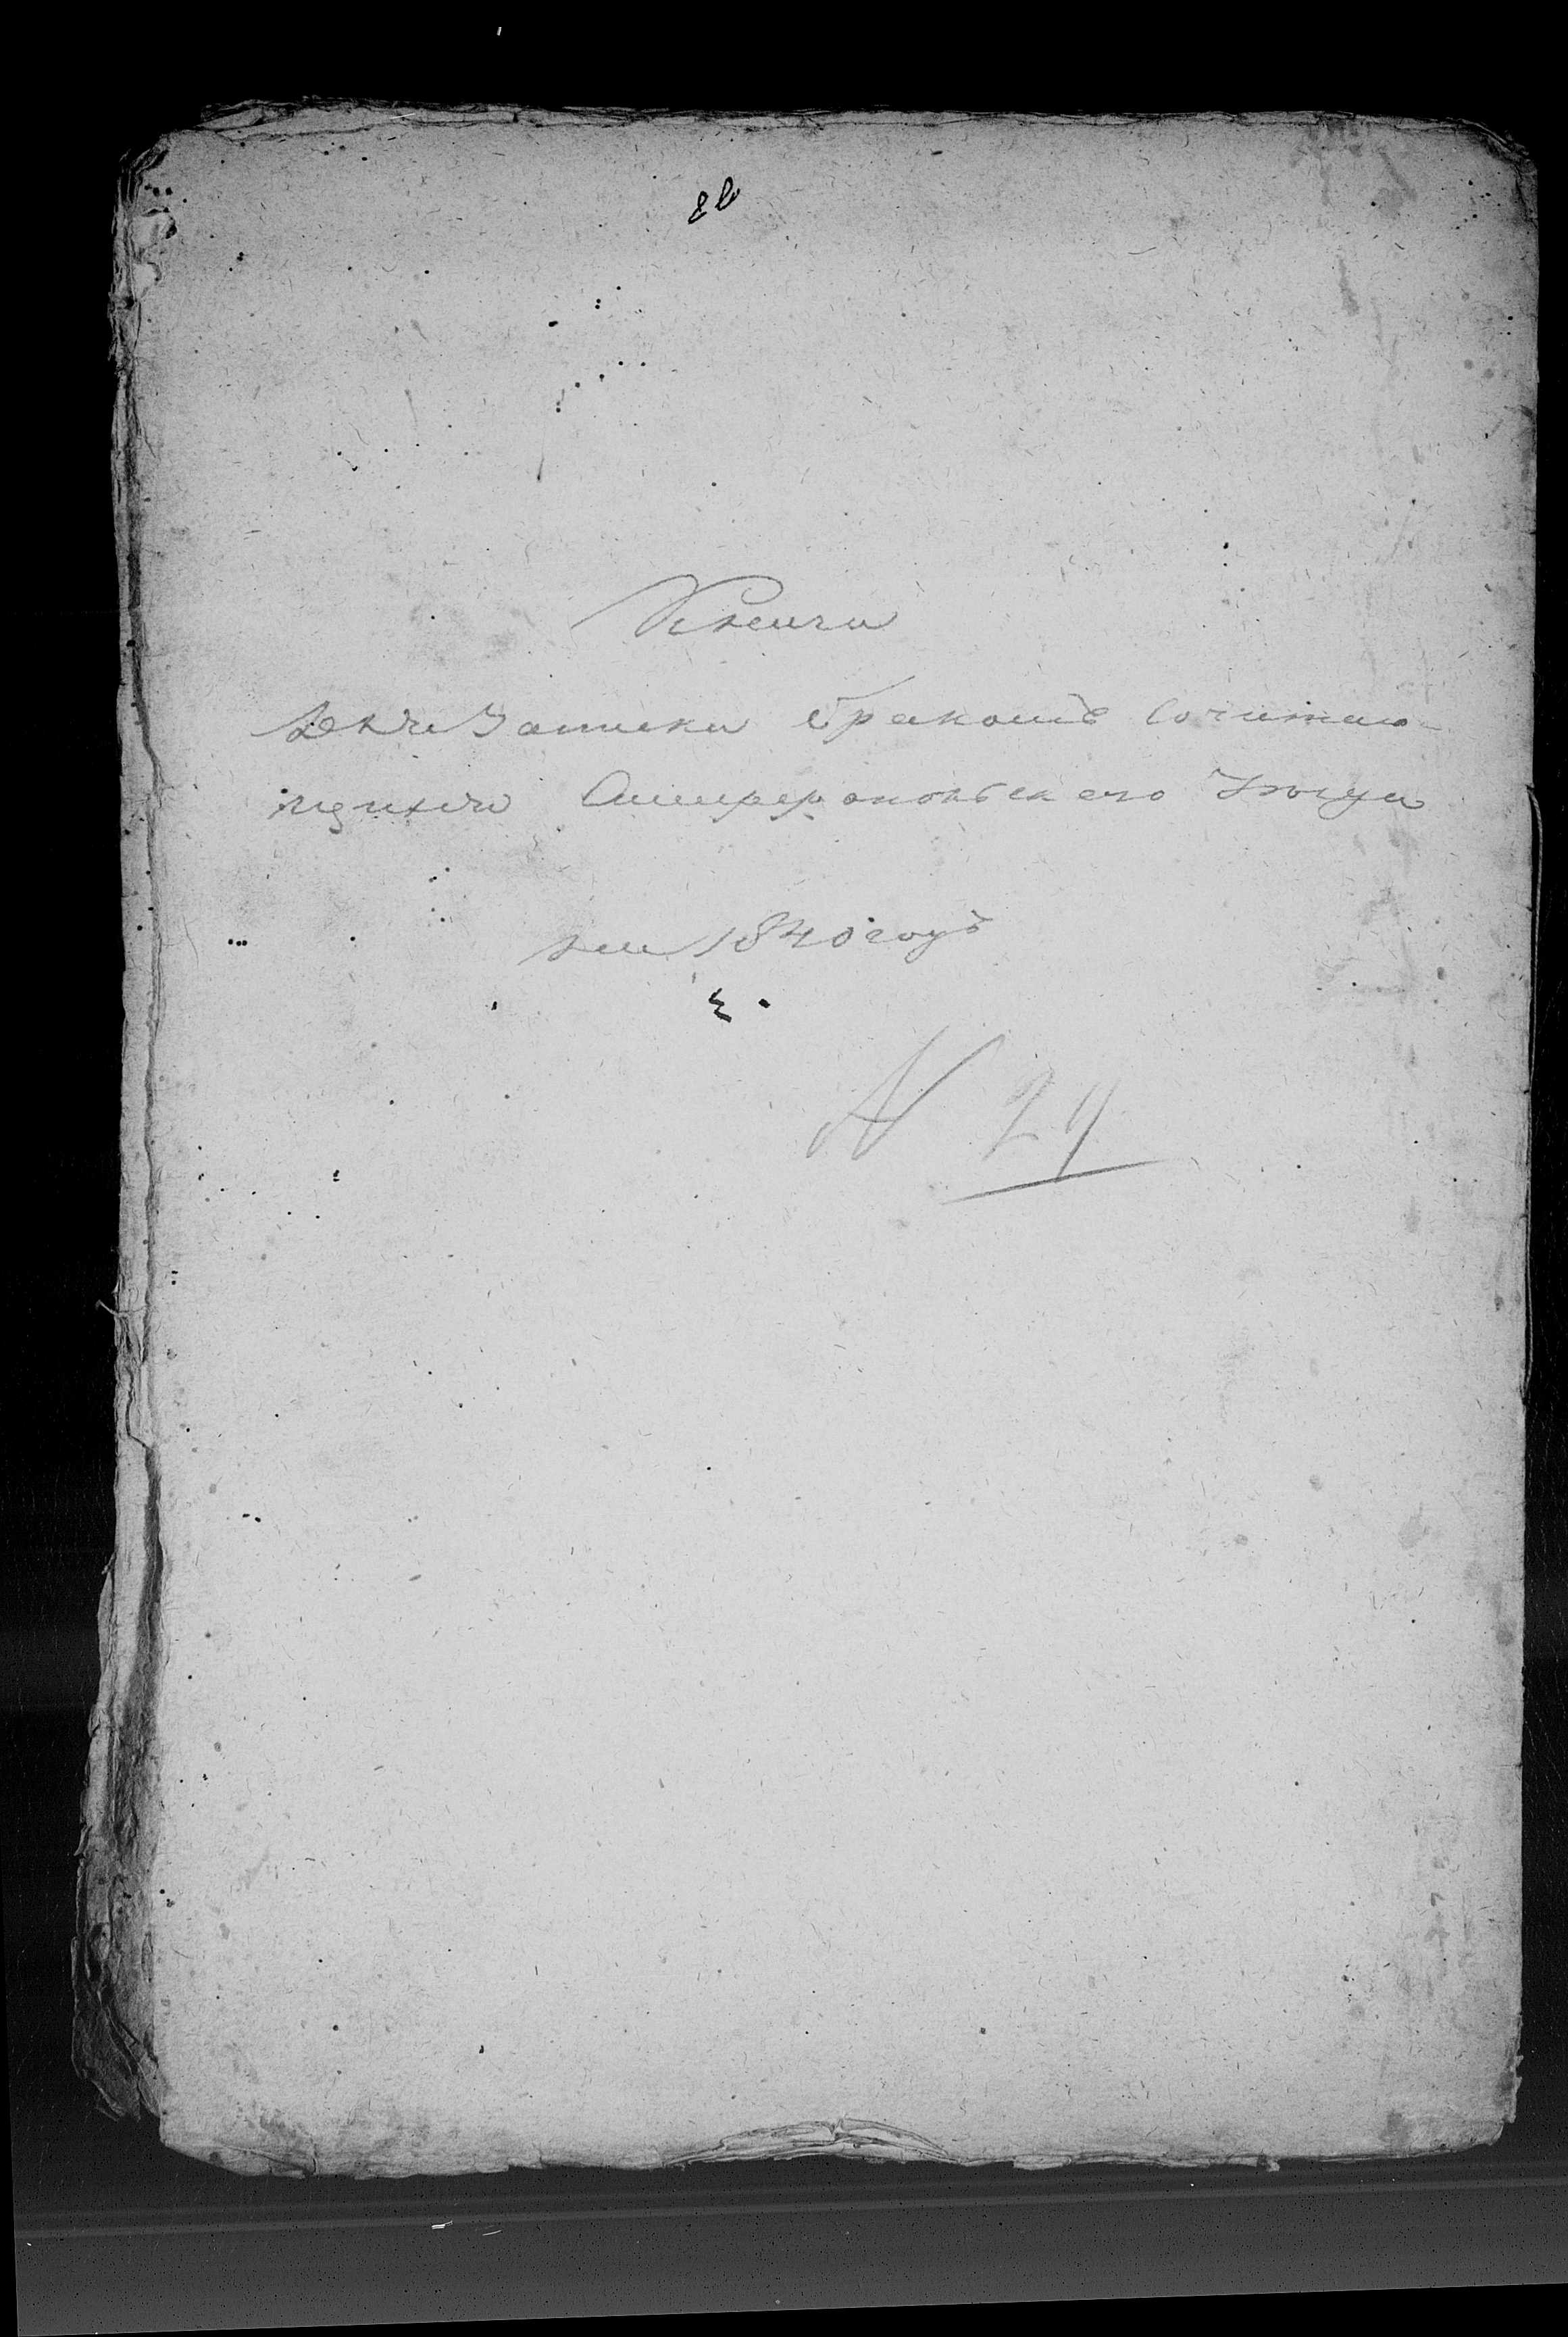 Книга
для Записки браком Сочитаю-
щихся Симферопольского Уезда
на 1840 годъ
N 24